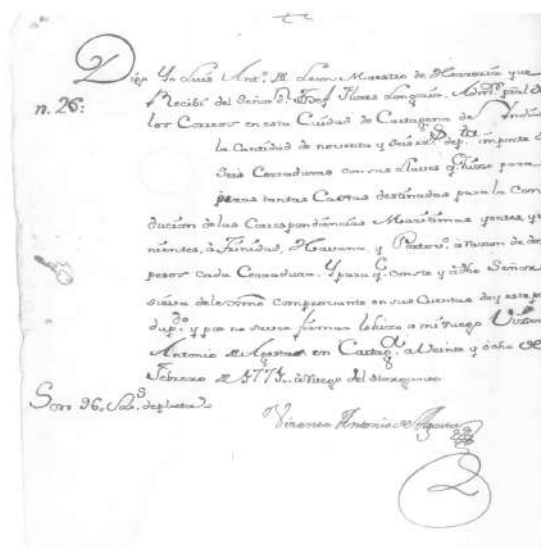 Digo Yo Luis Antº. de Leon Maestro de Herrería que
n. 26:
Recibí del Señor Dn. Josef Flores Longoria, Admºr. pral. de
los Correos en esta Ciudad de Cartagena de Yndias
la Cantidad de noventa y seis ps. de pta. importe de
Seis Cerraduras con sus Llaves q. hizo para
otras tantas Caxas destinadas para la Con
ducion de las Correspondiencias Maritimas yentes, y vi
nientes, á Trinidad, Havana, y Portovº. á razon de dos
pesos cada Cerradura. Y para q. conste y á dho Señor
sirva de comprovante en sus Cuentas doy este por
dupdo. y por no saver firmar lo hizo á mi ruego Vizente
Antonio de en Cartagª. á Veinte y ocho de
Febrero de 177 á Ruego del otorgante
Son 96. de plata
Vizente Antonio de